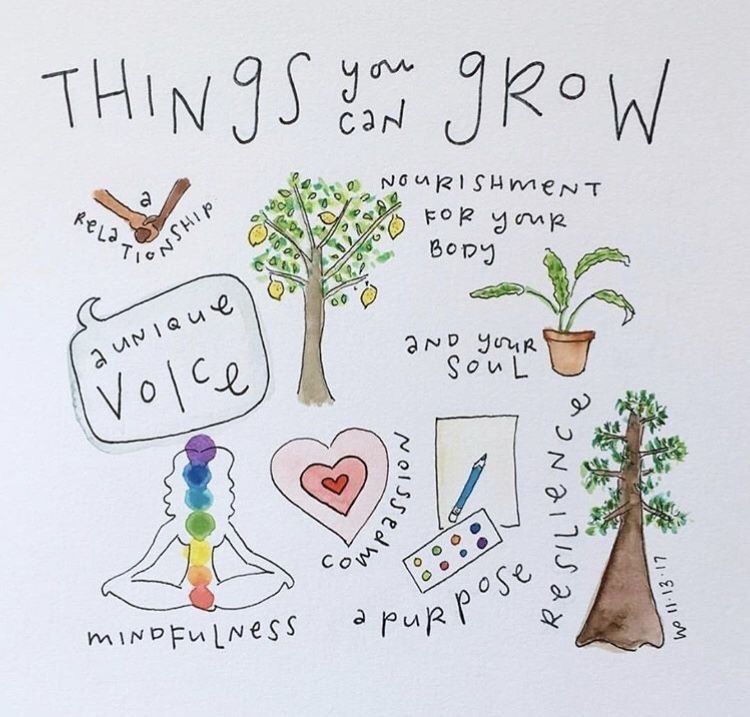 THINGS you can GROW
a RELATIONSHIP
NOURISHMENT
FOR YOUR
BODY
AND YOUR
SOUL
a UNIQUE
VOICE
RESILIENCE
COMPASSION
MINDFULNESS
a PURPOSE
11.13.17